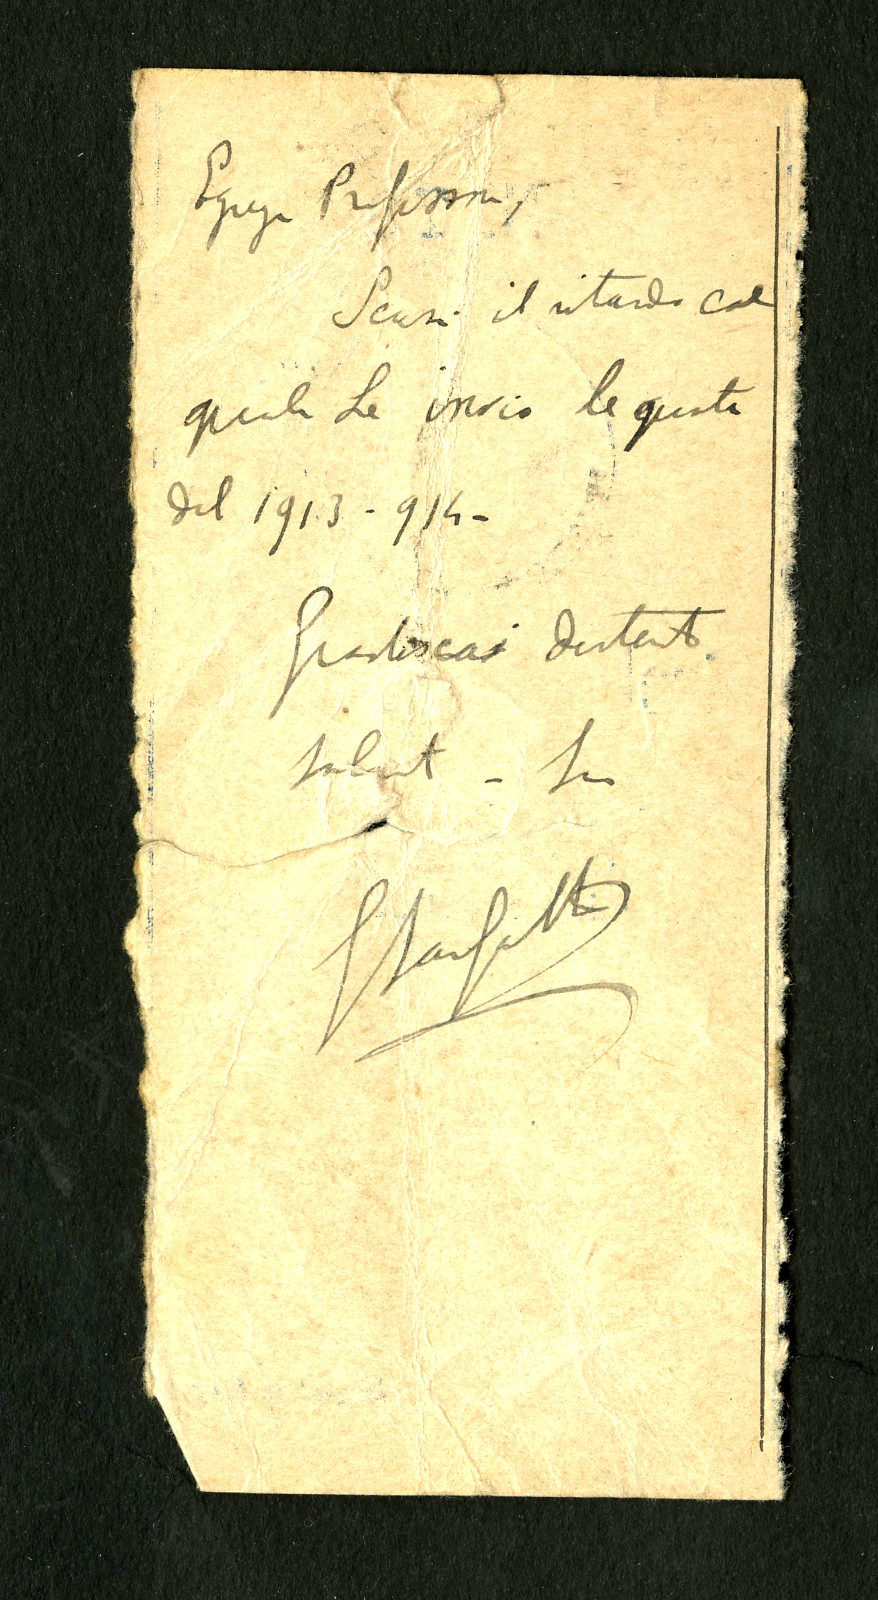 Egregio Professore,
Scusi il ritardo col
quale Le invio le quote
del 1913-914-
Gradisca i distinti
saluti - Suo